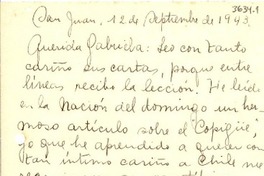 3634.1
San Juan, 12 de Septiembre de 1943.
Querida Gabriela: Leo con tanto
cariño sus cartas, porque entre
líneas recibo la lección! He leído
en la Nación del domingo un her-
moso artículo sobre el Copigüe,
yo que he aprendido a querer con
tan íntimo cariño a Chile me